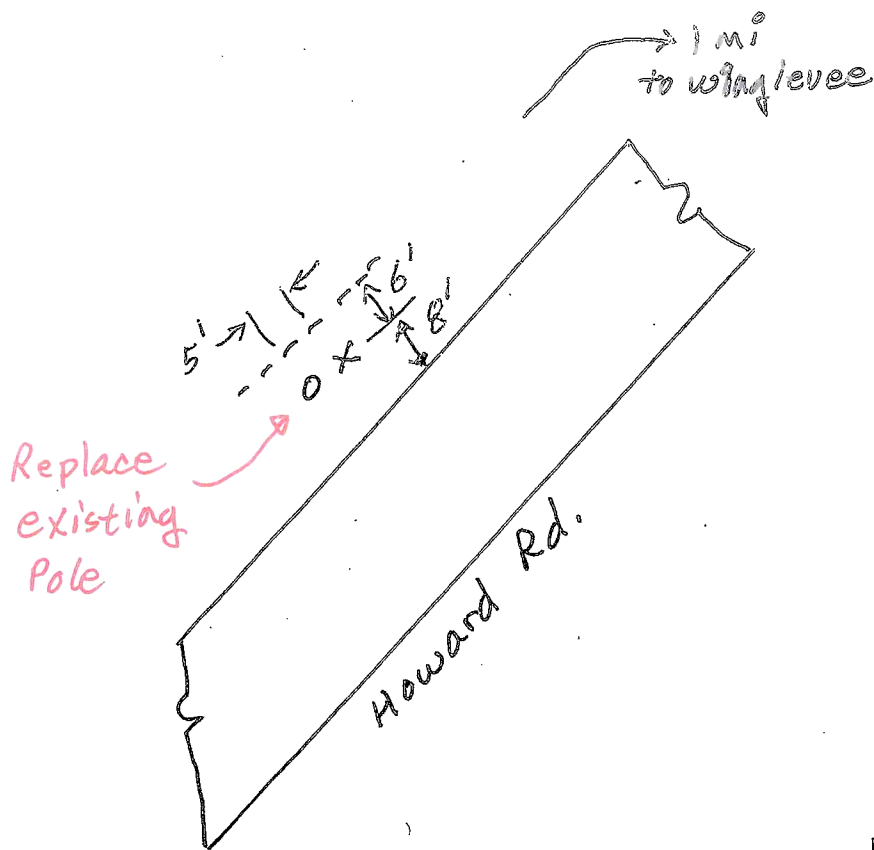 1 mi
to wing levee
6'
8'
5'
O X
Replace
existing
Pole
Howard Rd.